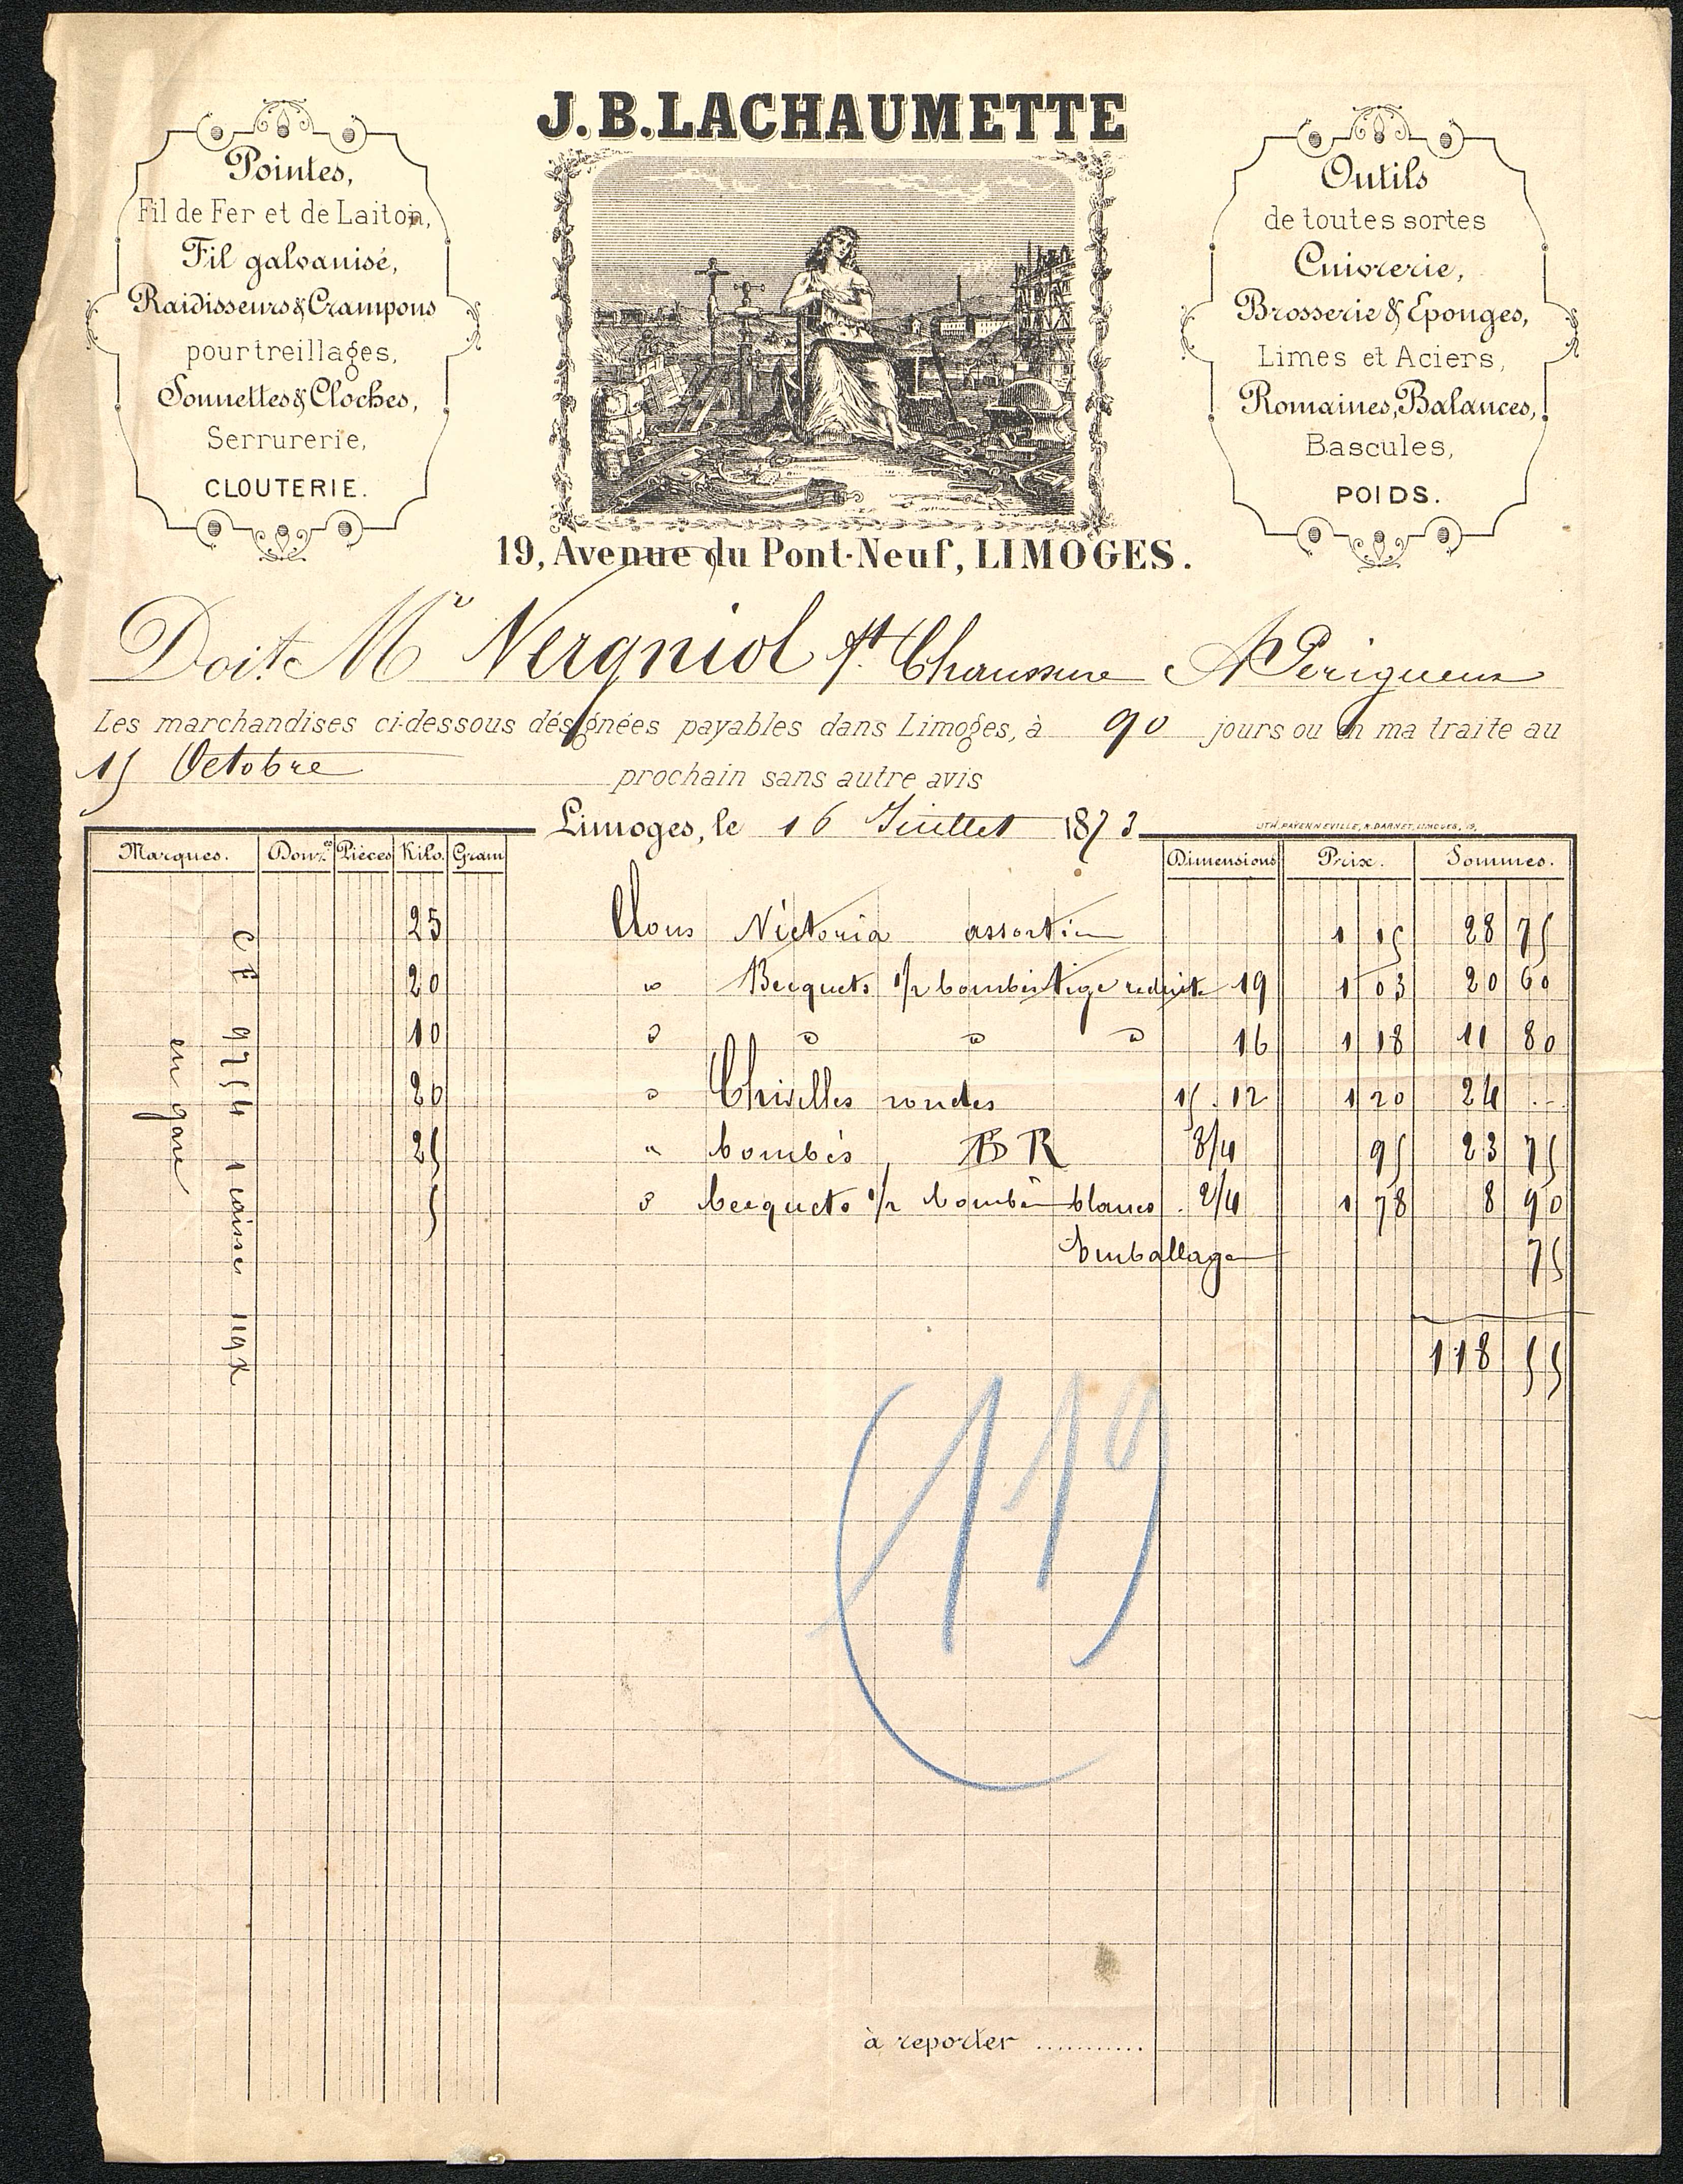 J.B.LACHAUMETTE
Pointes,
Fil de Fer et de Laiton,
Fil galvanisé,
Raidisseurs & Crampons
pour treillages,
Sonnettes & Cloches,
Serrurerie,
CLOUTERIE.
Outils
de toutes sortes
Cuivrerie,
Brosserie & Eponges,
Limes et Aciers,
Romaines, Balances,
Bascules,
POIDS.
19, Avenue du Pont-Neuf, LIMOGES.
Doit Mr Vergniol A Périgueux
Les marchandises ci-dessous désignées payables dans Limoges, à 90 jours ou en ma traite au
15 Octobre prochain sans autre avis
Limoges, le 16 Juillet 1873
LITH. PAYENNEVILLE, A. DARNET, LIMOGES, 19,
Marques. Douz.es Pièces Kilo. Gram Dimensions Prix. Sommes.
25 Clous Victoria assortis 1 15 28 75
20 " Becquets 1/2 bombés tige réduite 19 1 03 20 60
10 " " " " 16 1 18 11 80
20 " Chevilles rondes 15.12 1 20 24 --
25 " bombés, BR 3/4 95 23 75
5 " becquets 1/2 bombés blancs. 2/4 1 78 8 90
Emballage 75
118 55
C F 9754 1 caisse 119 K
en gare
119
à reporter ...........